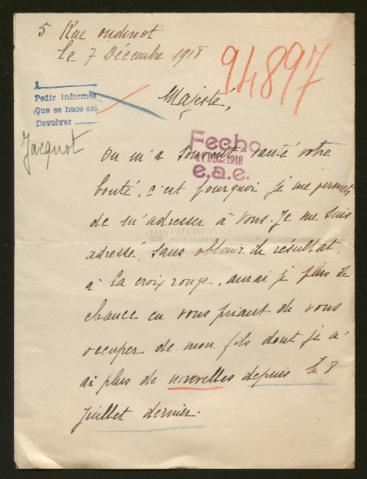 5 Rue oudinot
le 7 Décembre 1918
94897
A
Pedir informes
Que se haga así
Devolver
Majesté,
Jacquot
Fecho
DIC. 1918
e.a.e.
On m'a souvent vanté votre
bonté, c'est pourquoi je me permets
de m'adresser à vous. Je me suis
adressé, sans obtenir de résultat,
à la croix rouge, aurai je plus de
chance en vous priant de vous
occuper de mon fils dont je n'
ai plus de nouvelles depuis le 8
juillet dernier.